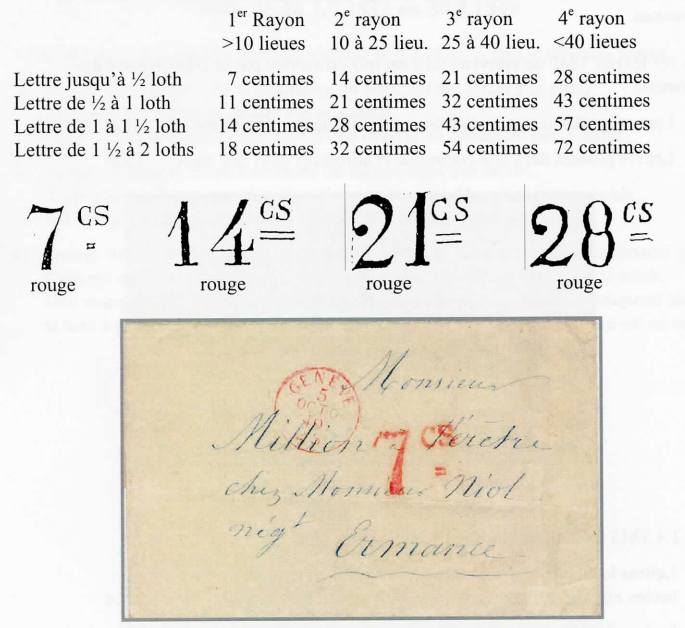 1er Rayon 2e rayon 3e rayon 4e rayon
>10 lieues 10 à 25 lieu. 25 à 40 lieu. <40 lieues
Lettre jusqu'à ½ loth 7 centimes 14 centimes 21 centimes 28 centimes
Lettre de ½ à 1 loth 11 centimes 21 centimes 32 centimes 43 centimes
Lettre de 1 à 1 ½ loth 14 centimes 28 centimes 43 centimes 57 centimes
Lettre de 1 ½ à 2 loths 18 centimes 32 centimes 54 centimes 72 centimes
7 CS 14 CS 21 CS 28 CS
rouge rouge rouge rouge
GENÈVE
5
OCTO
Monsieur
Million
7 CS
chez Monsieur Niol
négt
Ermance